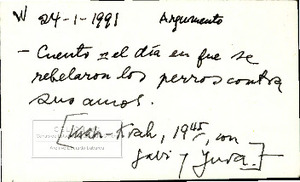 W 24-1-1991 Argumento
- Cuento el día en que se
rebelaron los perros contra
sus amos.
[Krah-Krah, 1945, con
Gabi y Yura]